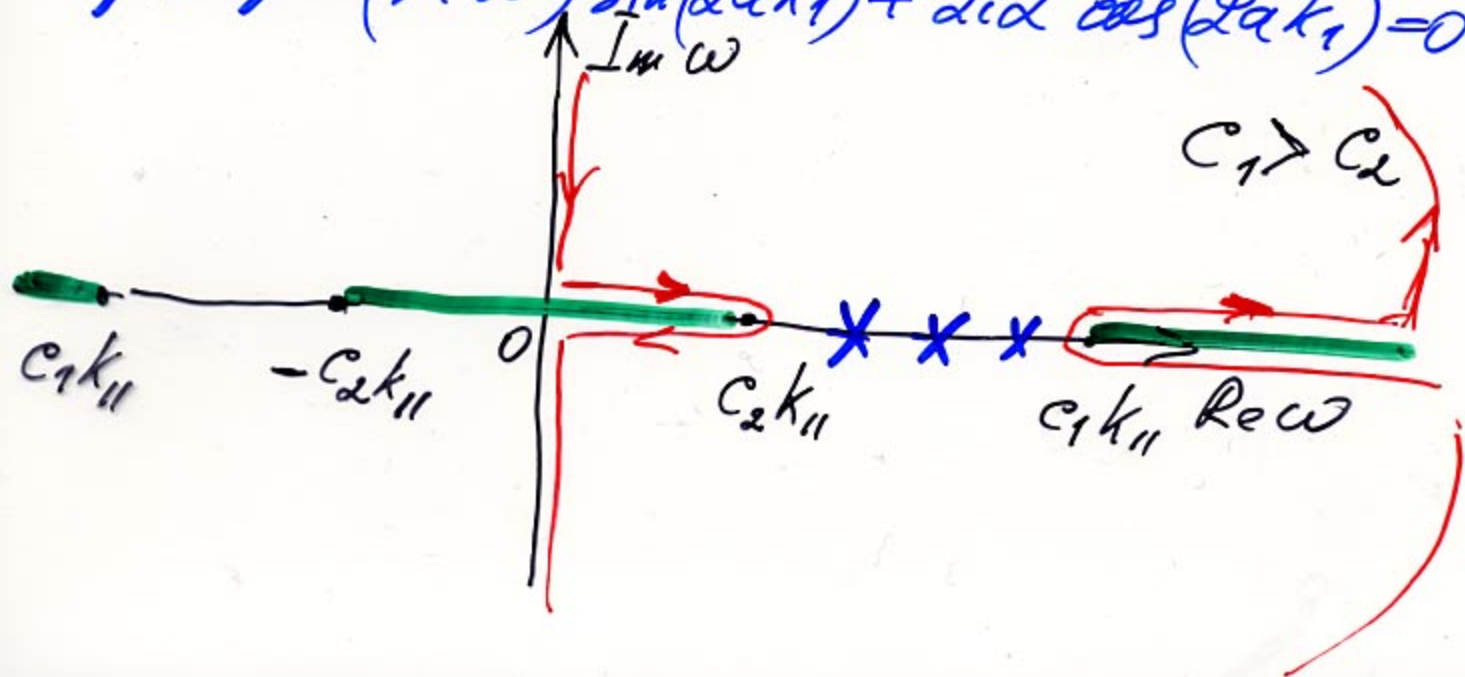 sin(2ak₁) + 2iα cos(2ak₁)=0
Im ω
C₁ > C₂
0
C₁k∥
-C₂k∥
C₂k∥
C₁k∥
Re ω